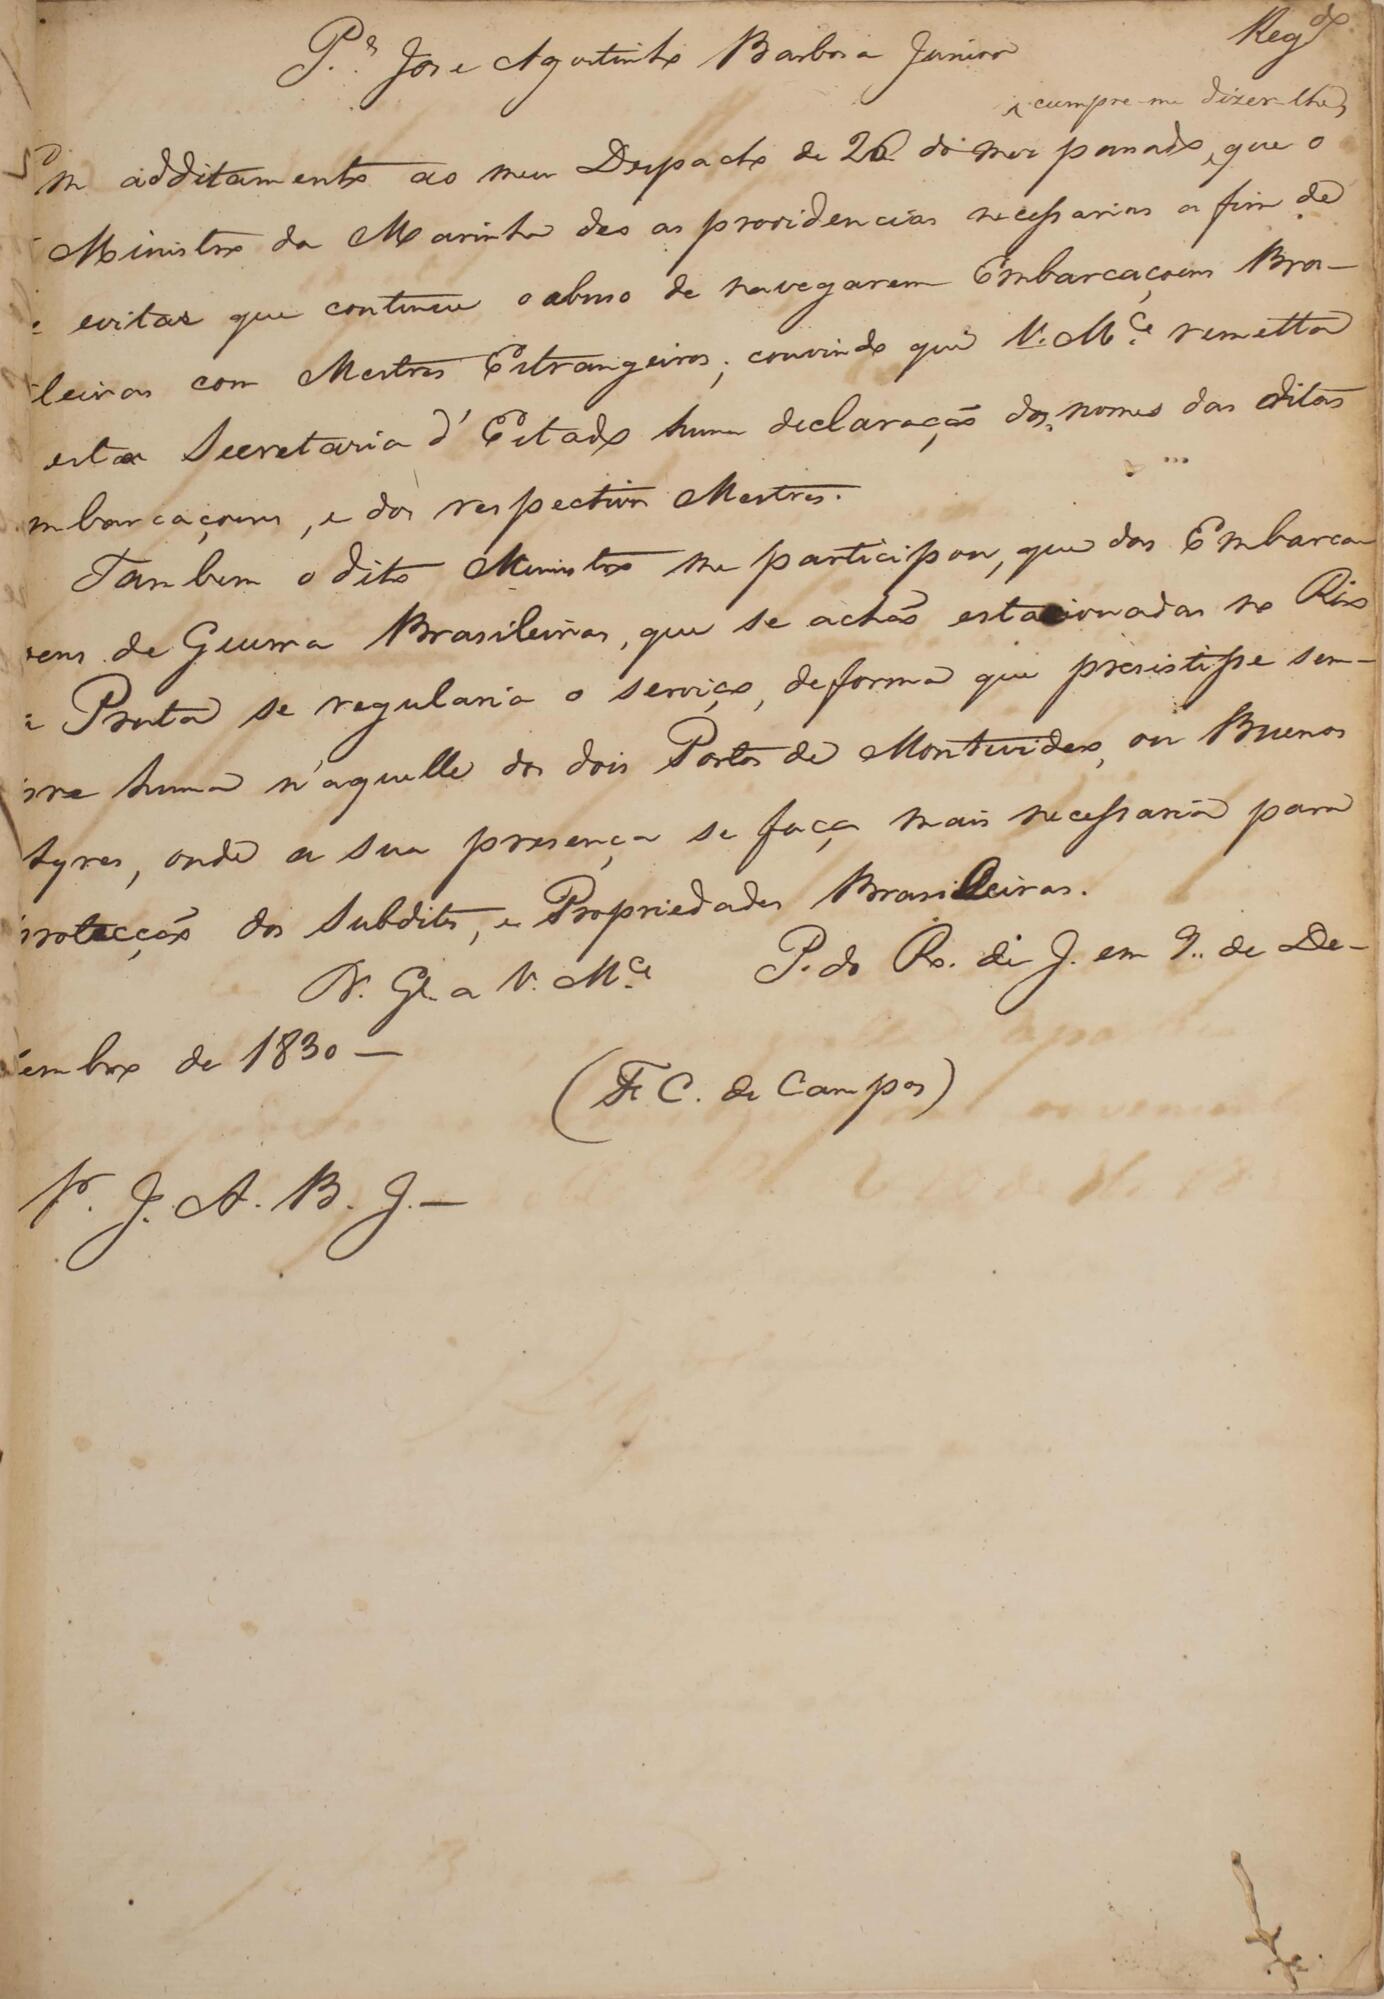 Reg.do
P.a Jose Agostinho Barbosa Junior
cumpre-me dizer-lhe,
Em additamento ao meu Despacho de 26 do mez passado, que o
Ministro da Marinha deo as providencias necessarias a fim de
e evitar que continue o abuso de navegarem Embarcaçoens Bra-
leiras com Mestres Estrangeiros; convindo que V. M.ce remetta
esta Secretaria d'Estado huma declaração dos nomes das ditas
mbarcaçoens, e dos respectivos Mestres.
Tambem o dito Ministro me participou, que das Embarca
oens de Guerra Brasileiras, que se achão estacionadas no Rio
a Prata se regularia o serviço, de forma que presistisse sem-
pre huma n'aquelle dos dois Portos de Montevideo, ou Buenos
Ayres, onde a sua presença se faça mais necessaria para
protecção dos Subditos, e Propriedades Brasileiras.
D. G.e a V. M.ce P. do R.o de J. em 9.. de De-
zembro de 1830 —
(F. C. de Campos)
Sr. J. A. B. J. —